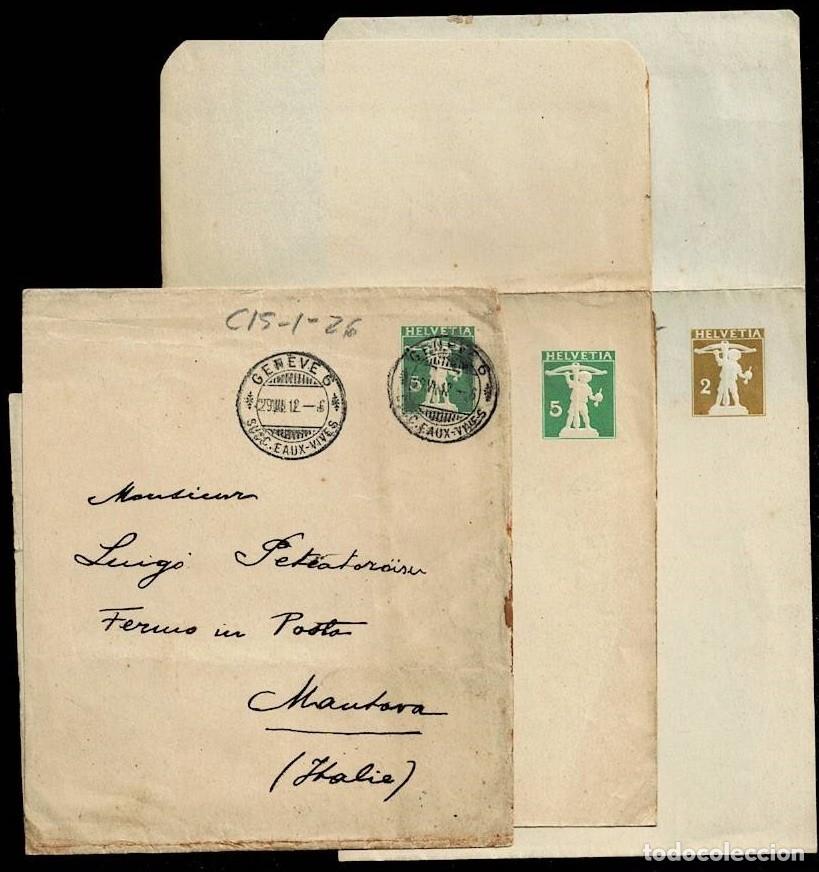 C15-1-26
HELVETIA
5
GENÈVE 6
SUCC. EAUX-VIVES
GENÈVE 6
SUCC. EAUX-VIVES
HELVETIA
5
HELVETIA
2
Monsieur
Luigi
Fermo in Posta
Mantova
(Italie)
todocoleccion